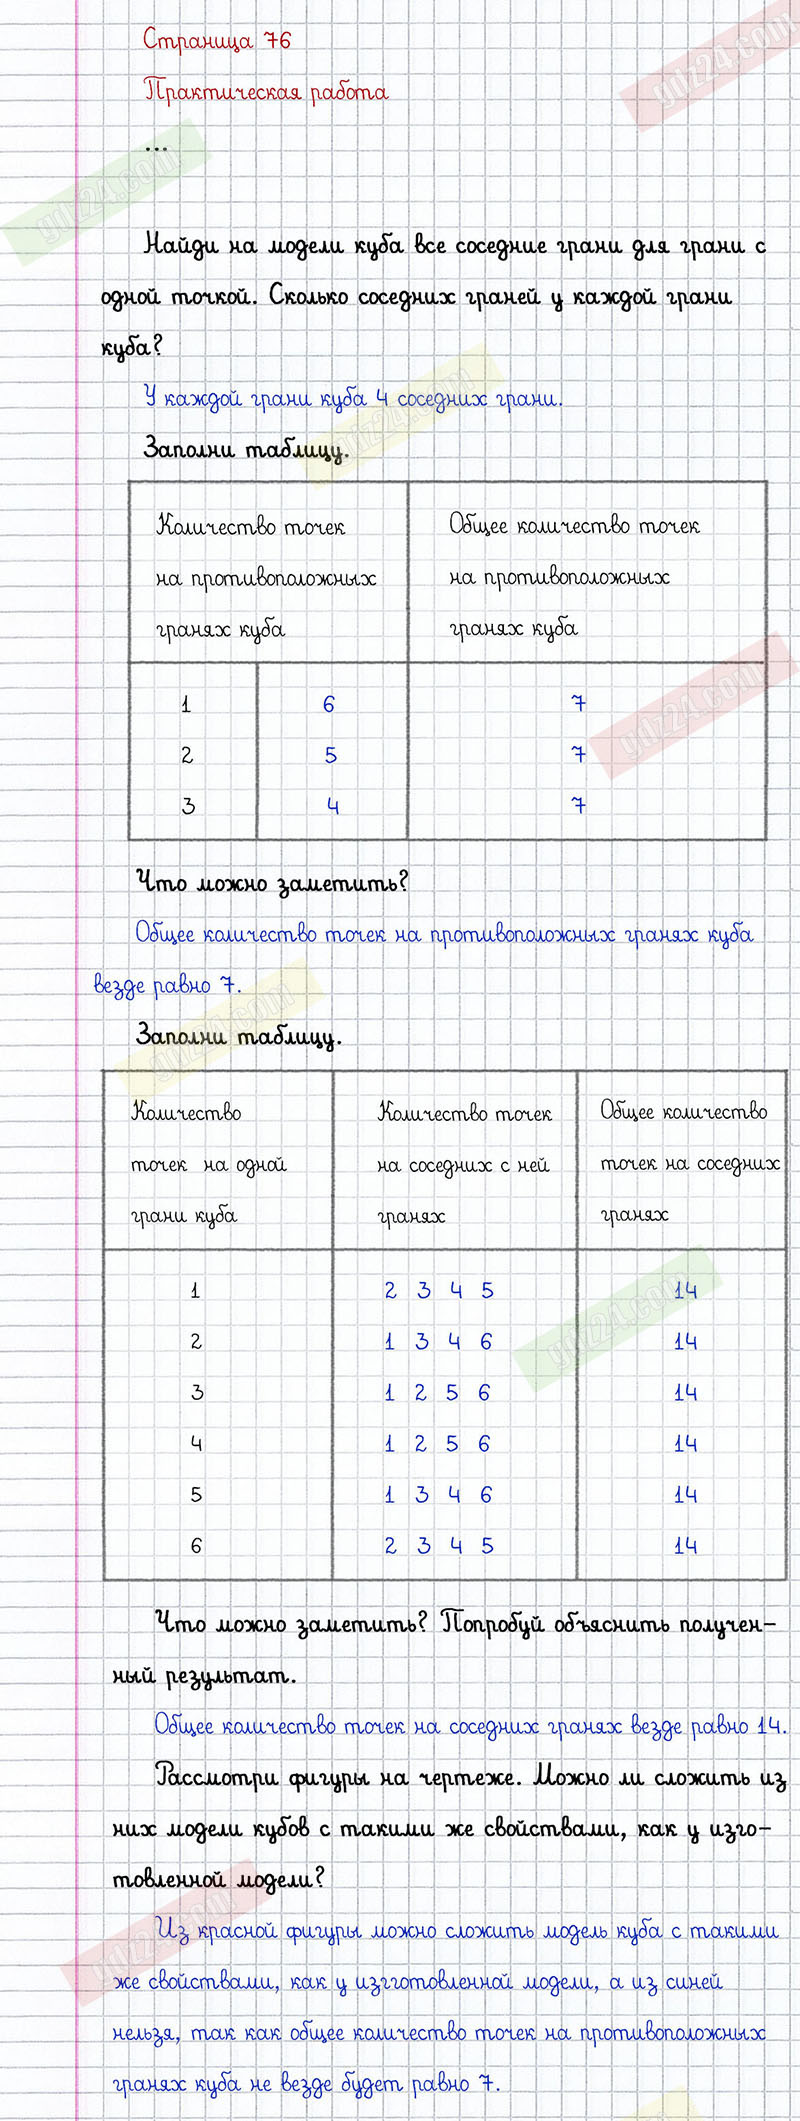 Страница 76
Практическая работа
...
Найди на модели куба все соседние грани для грани с
одной точкой. Сколько соседних граней у каждой грани
куба?
У каждой грани куба 4 соседних грани.
Заполни таблицу.
Количество точек
на противоположных
гранях куба
Общее количество точек
на противоположных
гранях куба
1 6 7
2 5 7
3 4 7
Что можно заметить?
Общее количество точек на противоположных гранях куба
везде равно 7.
Заполни таблицу.
Количество
точек на одной
грани куба
Количество точек
на соседних с ней
гранях
Общее количество
точек на соседних
гранях
1 2 3 4 5 14
2 1 3 4 6 14
3 1 2 5 6 14
4 1 2 5 6 14
5 1 3 4 6 14
6 2 3 4 5 14
Что можно заметить? Попробуй объяснить получен-
ный результат.
Общее количество точек на соседних гранях везде равно 14.
Рассмотри фигуры на чертеже. Можно ли сложить из
них модели кубов с такими же свойствами, как у изго-
товленной модели?
Из красной фигуры можно сложить модель куба с такими
же свойствами, как у изготовленной модели, а из синей
нельзя, так как общее количество точек на противоположных
гранях куба не везде будет равно 7.
gdz24.com
gdz24.com
gdz24.com
gdz24.com
gdz24.com
gdz24.com
gdz24.com